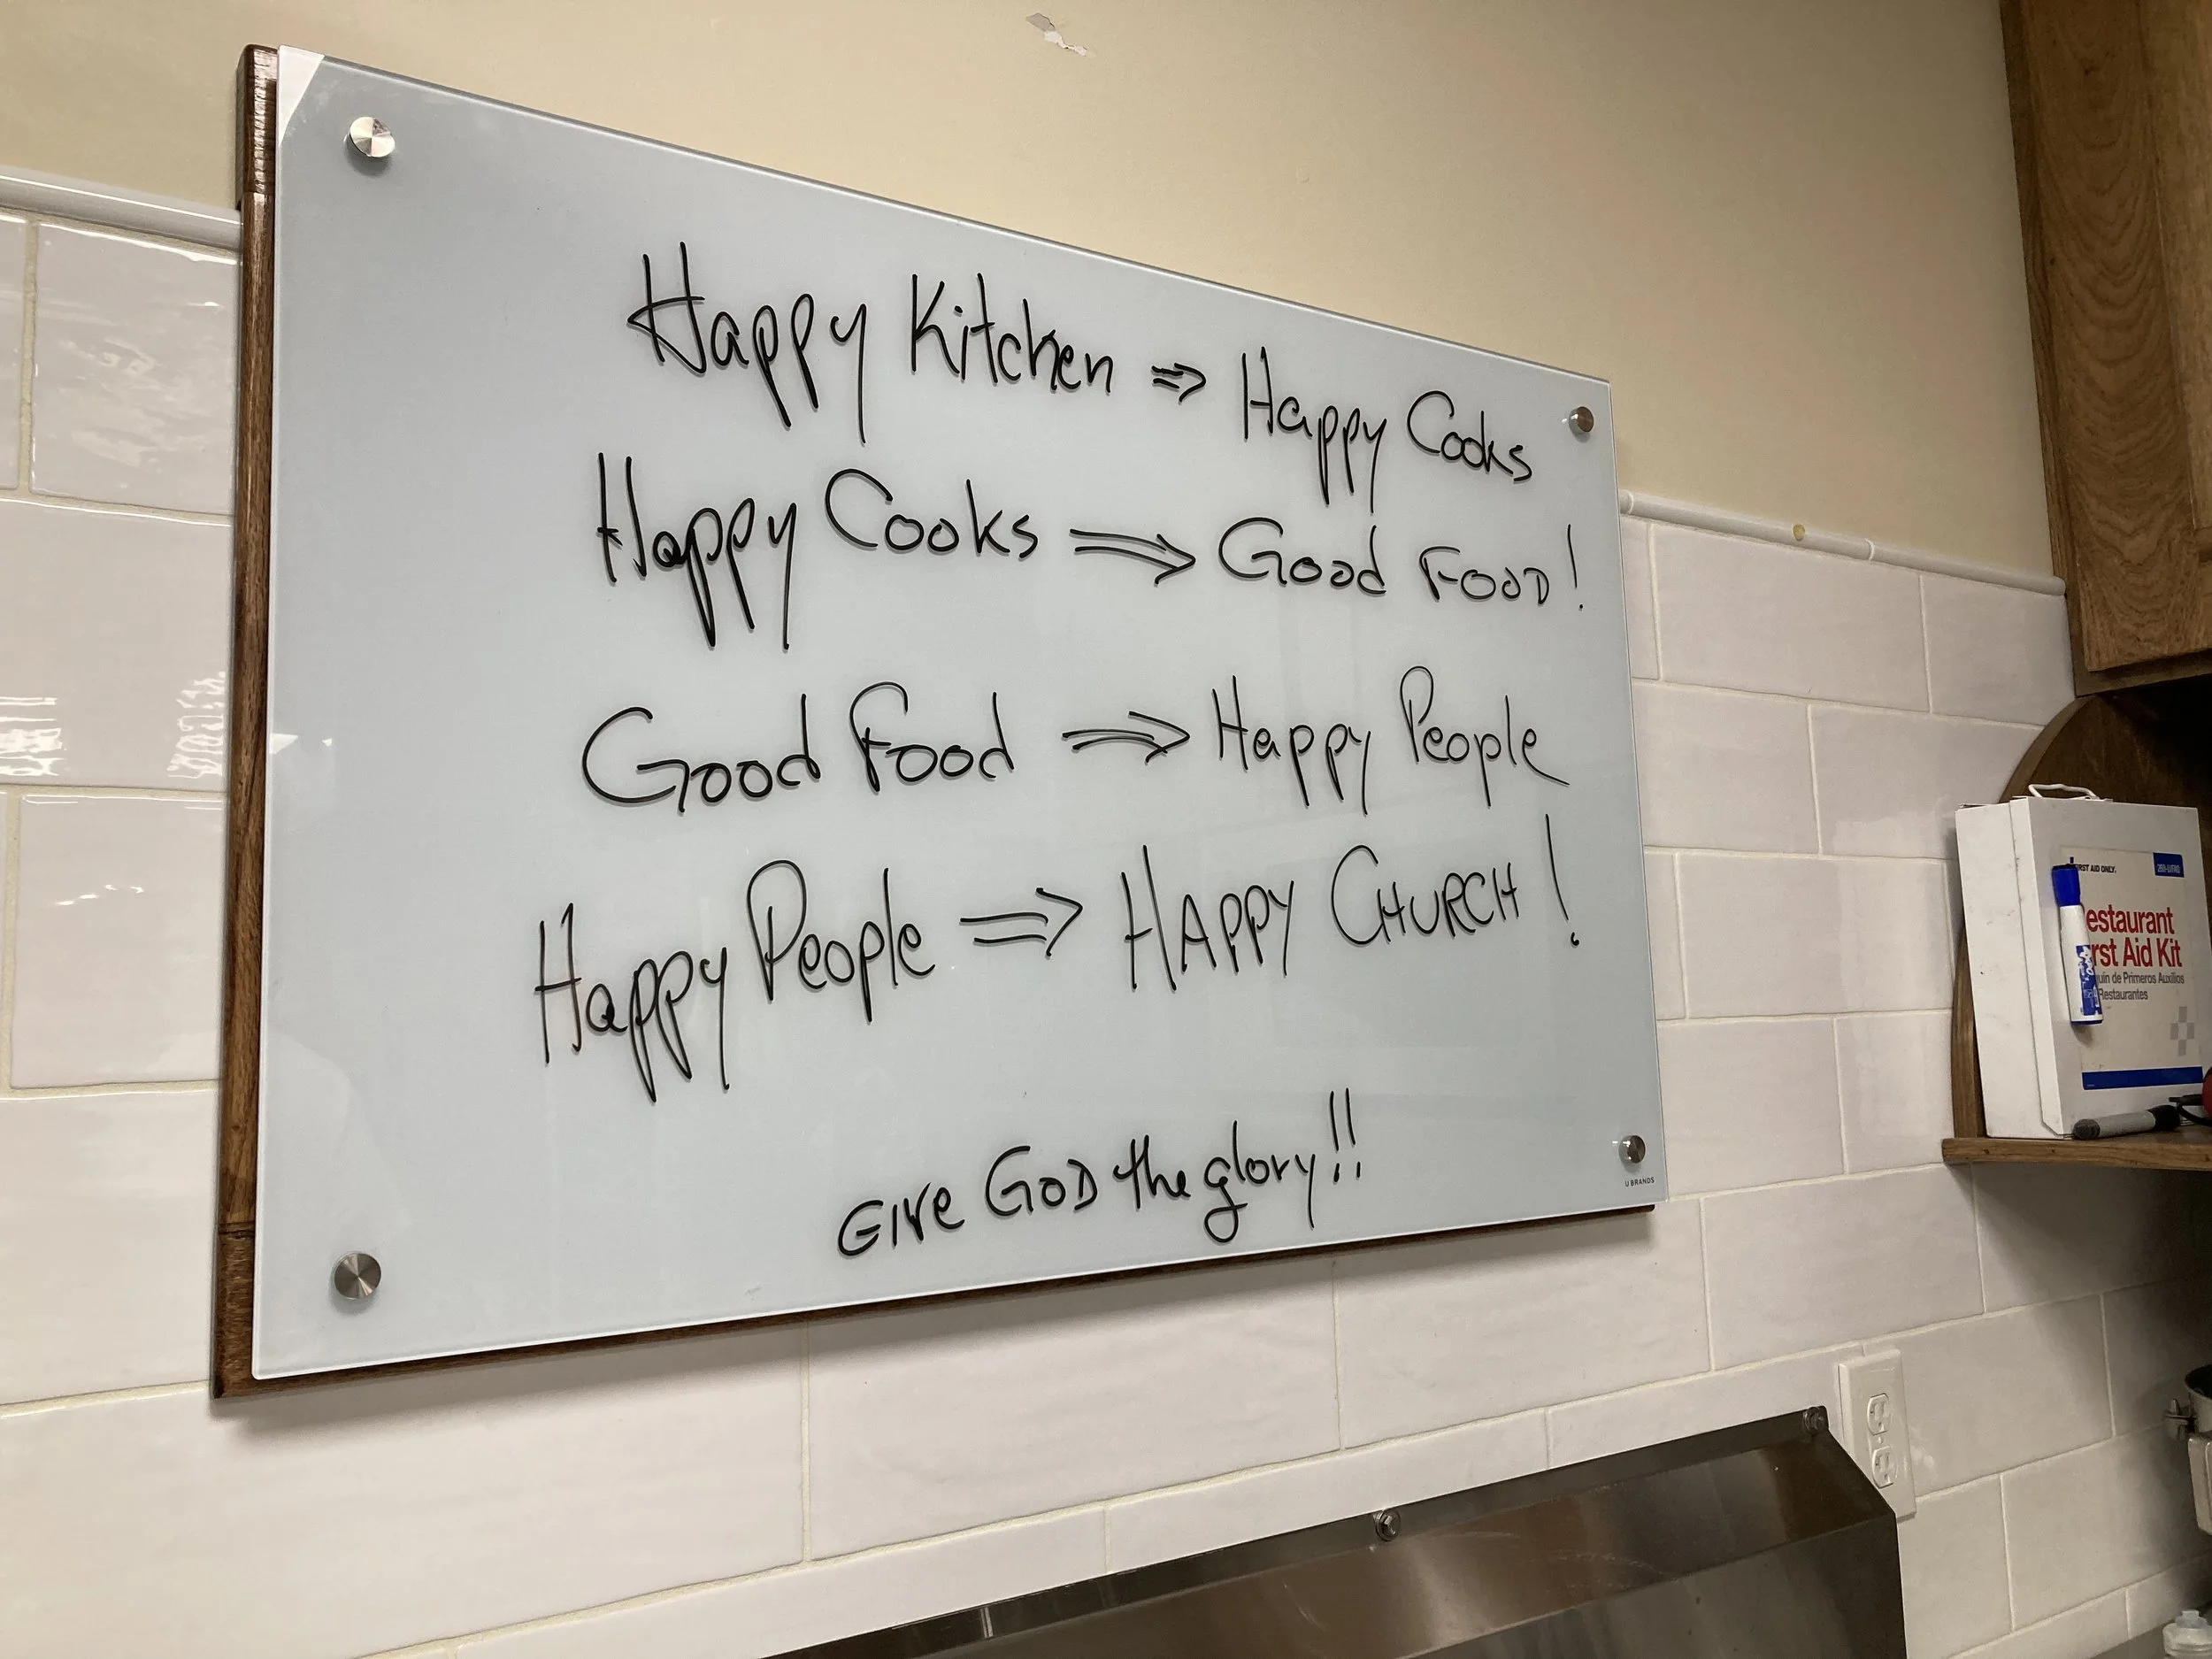 Happy Kitchen ⇒ Happy Cooks
Happy Cooks ⇒ Good FOOD!
Good Food ⇒ Happy People
Happy People ⇒ HAPPY CHURCH!
GIVe GOD the glory!!
U BRANDS
FIRST AID ONLY.
estaurant
rst Aid Kit
uin de Primeros Auxilios
Restaurantes